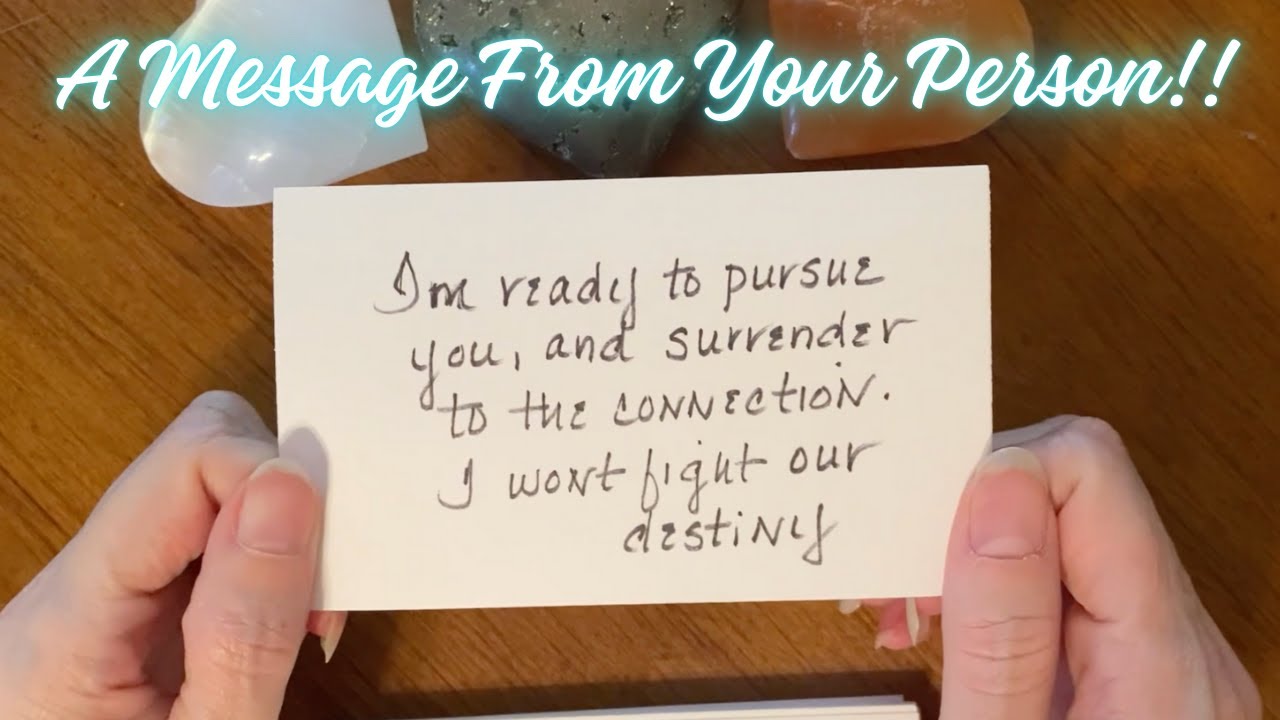 A Message From Your Person!!
I'm ready to pursue
you, and surrender
to the connection.
I wont fight our
destiny